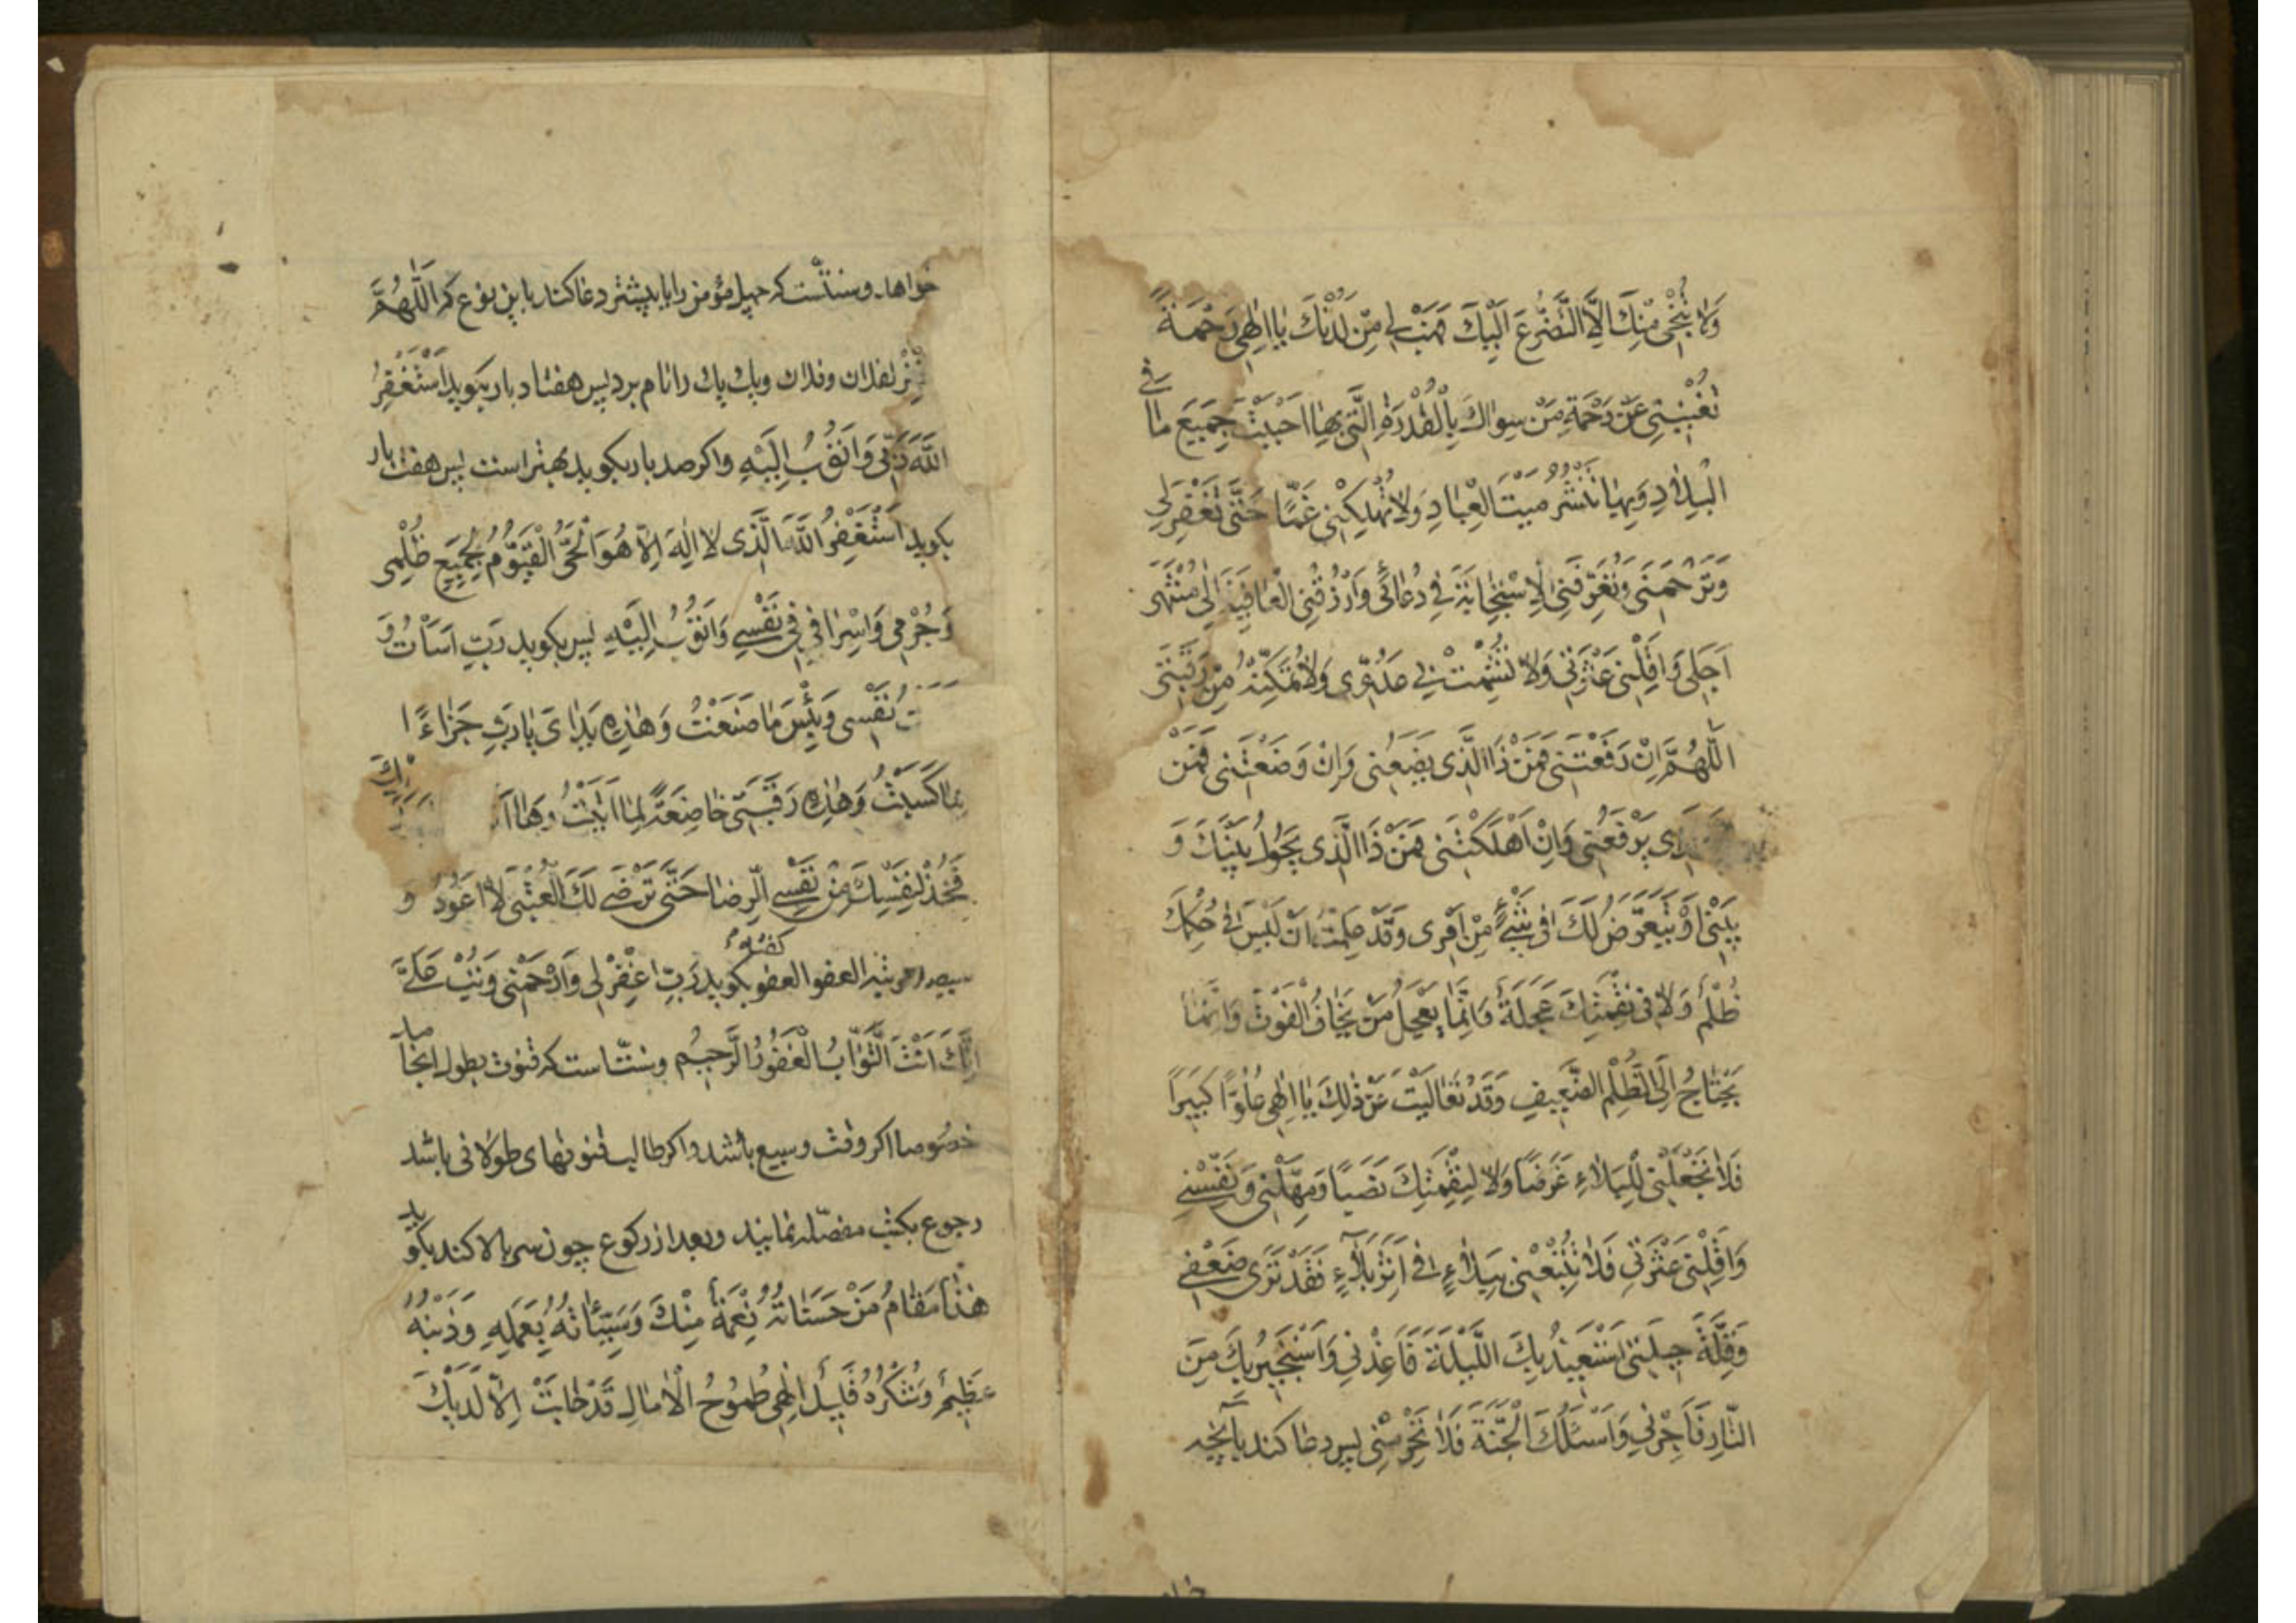 وَلَا يُنْجِى مِنْكَ اِلَّا التَّضَرُّعُ اِلَيْكَ فَهَبْ لِى مِنْ لَدُنْكَ يَا اِلٰهِى رَحْمَةً
تُغْنِيْنِى عَنْ رَحْمَةِ مَنْ سِوَاكَ بِالْقُدْرَةِ الَّتِى بِهَا اَحْيَيْتَ جَمِيعَ مَا فِى
الْبِلَادِ وَبِهَا تَنْشُرُ مَيْتَ الْعِبَادِ وَلَا تُهْلِكْنِى غَمًّا حَتّٰى تَغْفِرَ لِى
وَتَرْحَمَنِى وَتُعَرِّفَنِى الْاِسْتِجَابَةَ فِى دُعَائِى وَارْزُقْنِى الْعَافِيَةَ اِلٰى مُنْتَهٰى
اَجَلِى وَاَقِلْنِى عَثْرَتِى وَلَا تُشْمِتْ بِى عَدُوِّى وَلَا تُمَكِّنْهُ مِنْ رَقَبَتِى
اَللّٰهُمَّ اِنْ رَفَعْتَنِى فَمَنْ ذَا الَّذِى يَضَعُنِى وَاِنْ وَضَعْتَنِى فَمَنْ
يَرْفَعُنِى وَاِنْ اَهْلَكْتَنِى فَمَنْ ذَا الَّذِى يَحُولُ بَيْنَكَ وَ
بَيْنِى اَوْ يَتَعَرَّضُ لَكَ فِى شَىْءٍ مِنْ اَمْرِى وَقَدْ عَلِمْتُ اَنْ لَيْسَ فِى حُكْمِكَ
ظُلْمٌ وَلَا فِى نِقْمَتِكَ عَجَلَةٌ وَاِنَّمَا يَعْجَلُ مَنْ يَخَافُ الْفَوْتَ وَاِنَّمَا
يَحْتَاجُ اِلَى الظُّلْمِ الضَّعِيفُ وَقَدْ تَعَالَيْتَ عَنْ ذٰلِكَ يَا اِلٰهِى عُلُوًّا كَبِيرًا
فَلَا تَجْعَلْنِى لِلْبَلَاءِ غَرَضًا وَلَا لِنِقْمَتِكَ نَصَبًا وَمَهِّلْنِى وَنَفِّسْنِى
وَاَقِلْنِى عَثْرَتِى فَلَا تُتْبِعْنِى بِبَلَاءٍ فِى اَثَرِ بَلَاءٍ فَقَدْ تَرٰى ضَعْفِى
وَقِلَّةَ حِيلَتِى اَسْتَعِيذُ بِكَ اللَّيْلَةَ فَاَعِذْنِى وَاَسْتَجِيرُ بِكَ مِنَ
النَّارِ فَاَجِرْنِى وَاَسْئَلُكَ الْجَنَّةَ فَلَا تَحْرِمْنِى پس دعا كند بآنچه
خواهد وسنّتست كه چهل مؤمن را يا بيشتر دعا كند باين نوع كه اَللّٰهُمَّ
لفلان وفلان ويك يك را نام برد پس هفتاد بار بگويد اَسْتَغْفِرُ
اللّٰهَ رَبِّى وَاَتُوْبُ اِلَيْهِ واگر صد بار بگويد بهتر است پس هفت بار
بگويد اَسْتَغْفِرُ اللّٰهَ الَّذِى لَا اِلٰهَ اِلَّا هُوَ الْحَىُّ الْقَيُّوْمُ لِجَمِيعِ ظُلْمِى
وَجُرْمِى وَاِسْرَافِى فِى نَفْسِى وَاَتُوْبُ اِلَيْهِ پس بگويد رَبِّ اَسَأْتُ وَ
نَفْسِى وَبِئْسَ مَا صَنَعْتُ وَهٰذِهِ يَدَاىَ يَا رَبِّ جَزَاءً
بِمَا كَسَبَتْ وَهٰذِهِ رَقَبَتِى خَاضِعَةً لِمَا اَتَيْتُ وَهَا اَ
فَخُذْ لِنَفْسِكَ مِنْ نَفْسِى الرِّضَا حَتّٰى تَرْضٰى لَكَ الْعُتْبٰى لَا اَعُوْدُ وَ
سيصد مرتبه العفو العفو گفته بگويد رَبِّ اغْفِرْ لِى وَارْحَمْنِى وَتُبْ عَلَىَّ
اِنَّكَ اَنْتَ التَّوَّابُ الْغَفُوْرُ الرَّحِيْمُ وسنّت است كه قنوت بطول انجامد
خصوصا اگر وقت وسيع باشد واگر طالب قنوتهاى طولانى باشد
رجوع بكتب مفصّله نمايند وبعد از ركوع چون سر بالا كند بگويد
هٰذَا مَقَامُ مَنْ حَسَنَاتُهُ نِعْمَةٌ مِنْكَ وَسَيِّئَاتُهُ بِعَمَلِهِ وَذَنْبُهُ
عَظِيْمٌ وَشُكْرُهُ قَلِيْلٌ اِلٰهِى طُمُوْحُ الْاٰمَالِ قَدْ خَابَتْ اِلَّا لَدَيْكَ